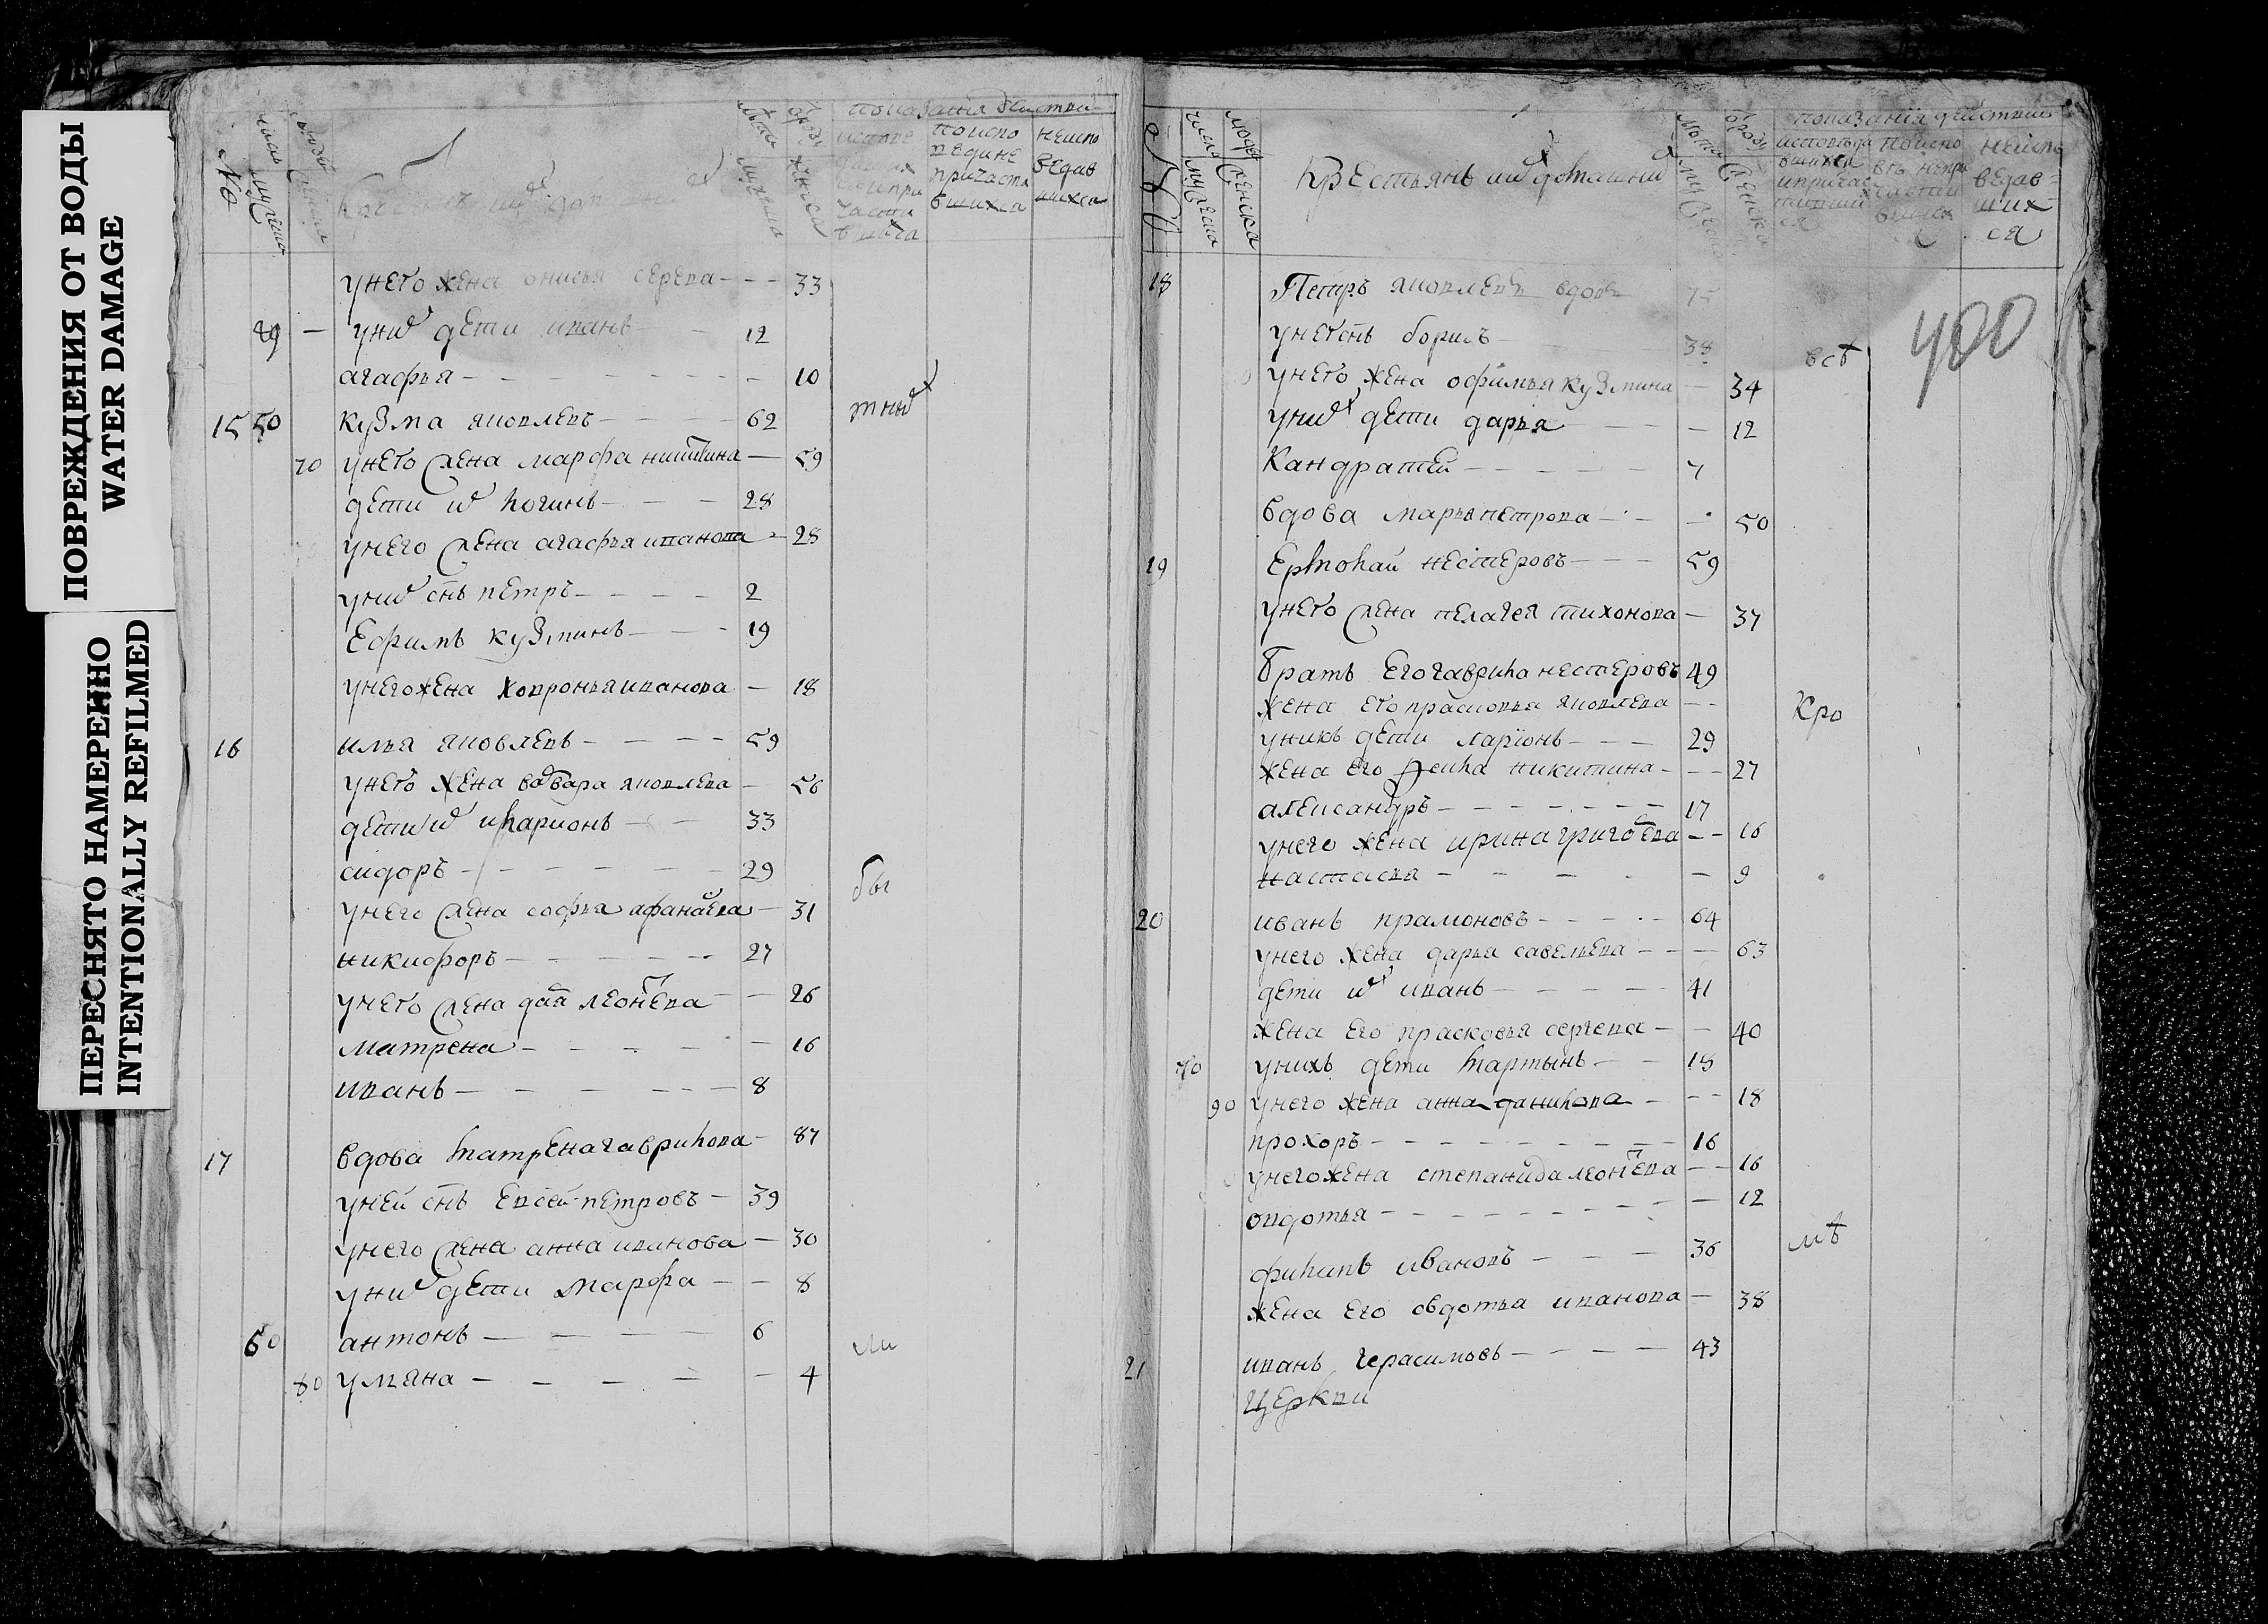 ПОВРЕЖДЕНИЯ ОТ ВОДЫ
WATER DAMAGE
ПЕРЕСНЯТО НАМЕРЕННО
INTENTIONALLY REFILMED
№
показания
поиспо
ведине
причаста
вшихся
неиспо
ведав
шихся
унего жена онисья 33
49 — уних дети иванъ 12
агафья 10
15 50 кузма яковлевъ 62
тных
70 унего жена марфа никитина 59
дети их логинъ 28
унего жена агафья иванова 28
уних снъ петръ 2
Ефимъ кузминъ 19
унего жена ховронья иванова 18
16 илья яковлевъ 59
унего жена варвара яковлева 56
дети их иларионъ 33
сидоръ 29
бы
унего жена софья афанасева 31
никифоръ 27
унего жена дарья леонтева 26
матрена 16
иванъ 8
17 вдова матрена гаврилова 87
уней снъ евсей петровъ 39
унего жена анна иванова 30
уних дети марфа 8
60 антонъ 6
ли
80 ульяна 4
№ числа людей
мужеска женска
Крестьянъ их домашних
показания
неиспо
ведав=
ших
ся
400
18 Петръ яковлевъ вдовъ 75
унего снъ борисъ 38
всѣ
унего жена офимья кузмина 34
уних дети дарья 12
Кандратей 7
вдова марья петрова 50
19 Ермолай нестеровъ 59
унего жена пелагея тихонова 37
братъ его гаврила нестеровъ 49
жена его прасковья яковлева
Кро
унихъ дети ларионъ 29
жена его никитина 27
александръ 17
унего жена ирина григорева 16
настасья 9
20 иванъ прамоновъ 64
унего жена дарья савельева 63
дети их иванъ 41
жена его прасковья сергева 40
70 унихъ дети мартынъ 18
90 унего жена анна данилова 18
прохоръ 16
унего жена степанида леонтева 16
овдотья 12
мѣ
филипъ ивановъ 36
жена его овдотья иванова 38
21 иванъ герасимовъ 43
церкви